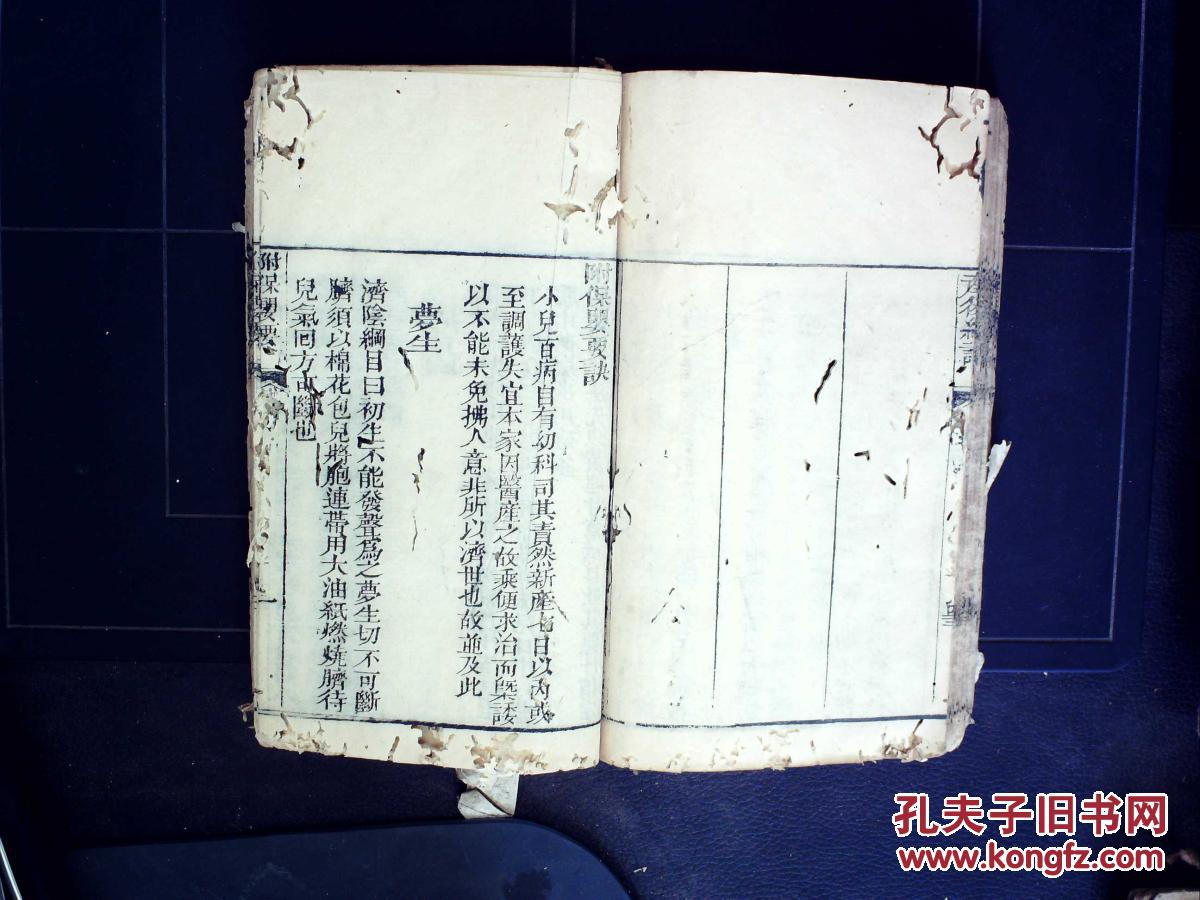 產後
附保嬰要訣
小兒百病自有幼科司其責然新產七日以內或
至調護失宜本家因醫產之故乘便求治而槩諉
以不能未免拂人意非所以濟世也故並及此
夢生
濟陰綱目曰初生不能發聲爲之夢生切不可斷
臍須以棉花包兒將胞連帶用大油紙燃燒臍待
兒氣回方可斷也
附保嬰要
孔夫子旧书网
www.kongfz.com